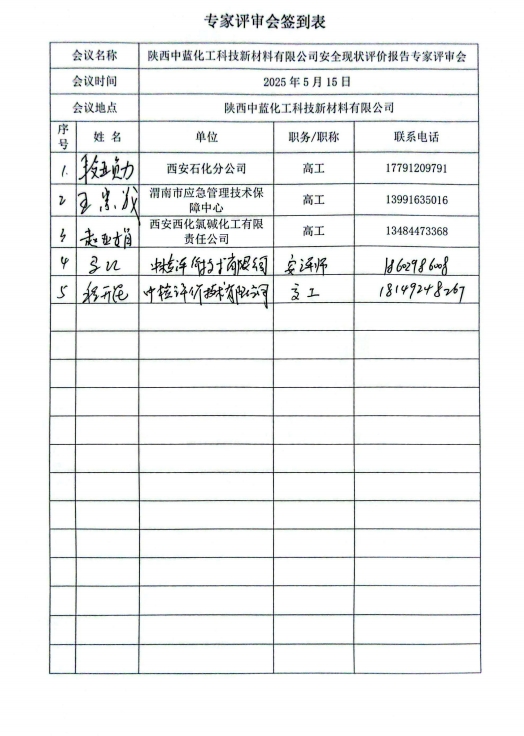 专家评审会签到表
会议名称 陕西中蓝化工科技新材料有限公司安全现状评价报告专家评审会
会议时间 2025年5月15日
会议地点 陕西中蓝化工科技新材料有限公司
序号 姓名 单位 职务/职称 联系电话
1. 西安石化分公司 高工 17791209791
2 王 渭南市应急管理技术保
障中心 高工 13991635016
3 赵亚娟 西安西化氯碱化工有限
责任公司 高工 13484473368
4 评价技术有限公司 安评师
5 评价技术有限公司 18149248267